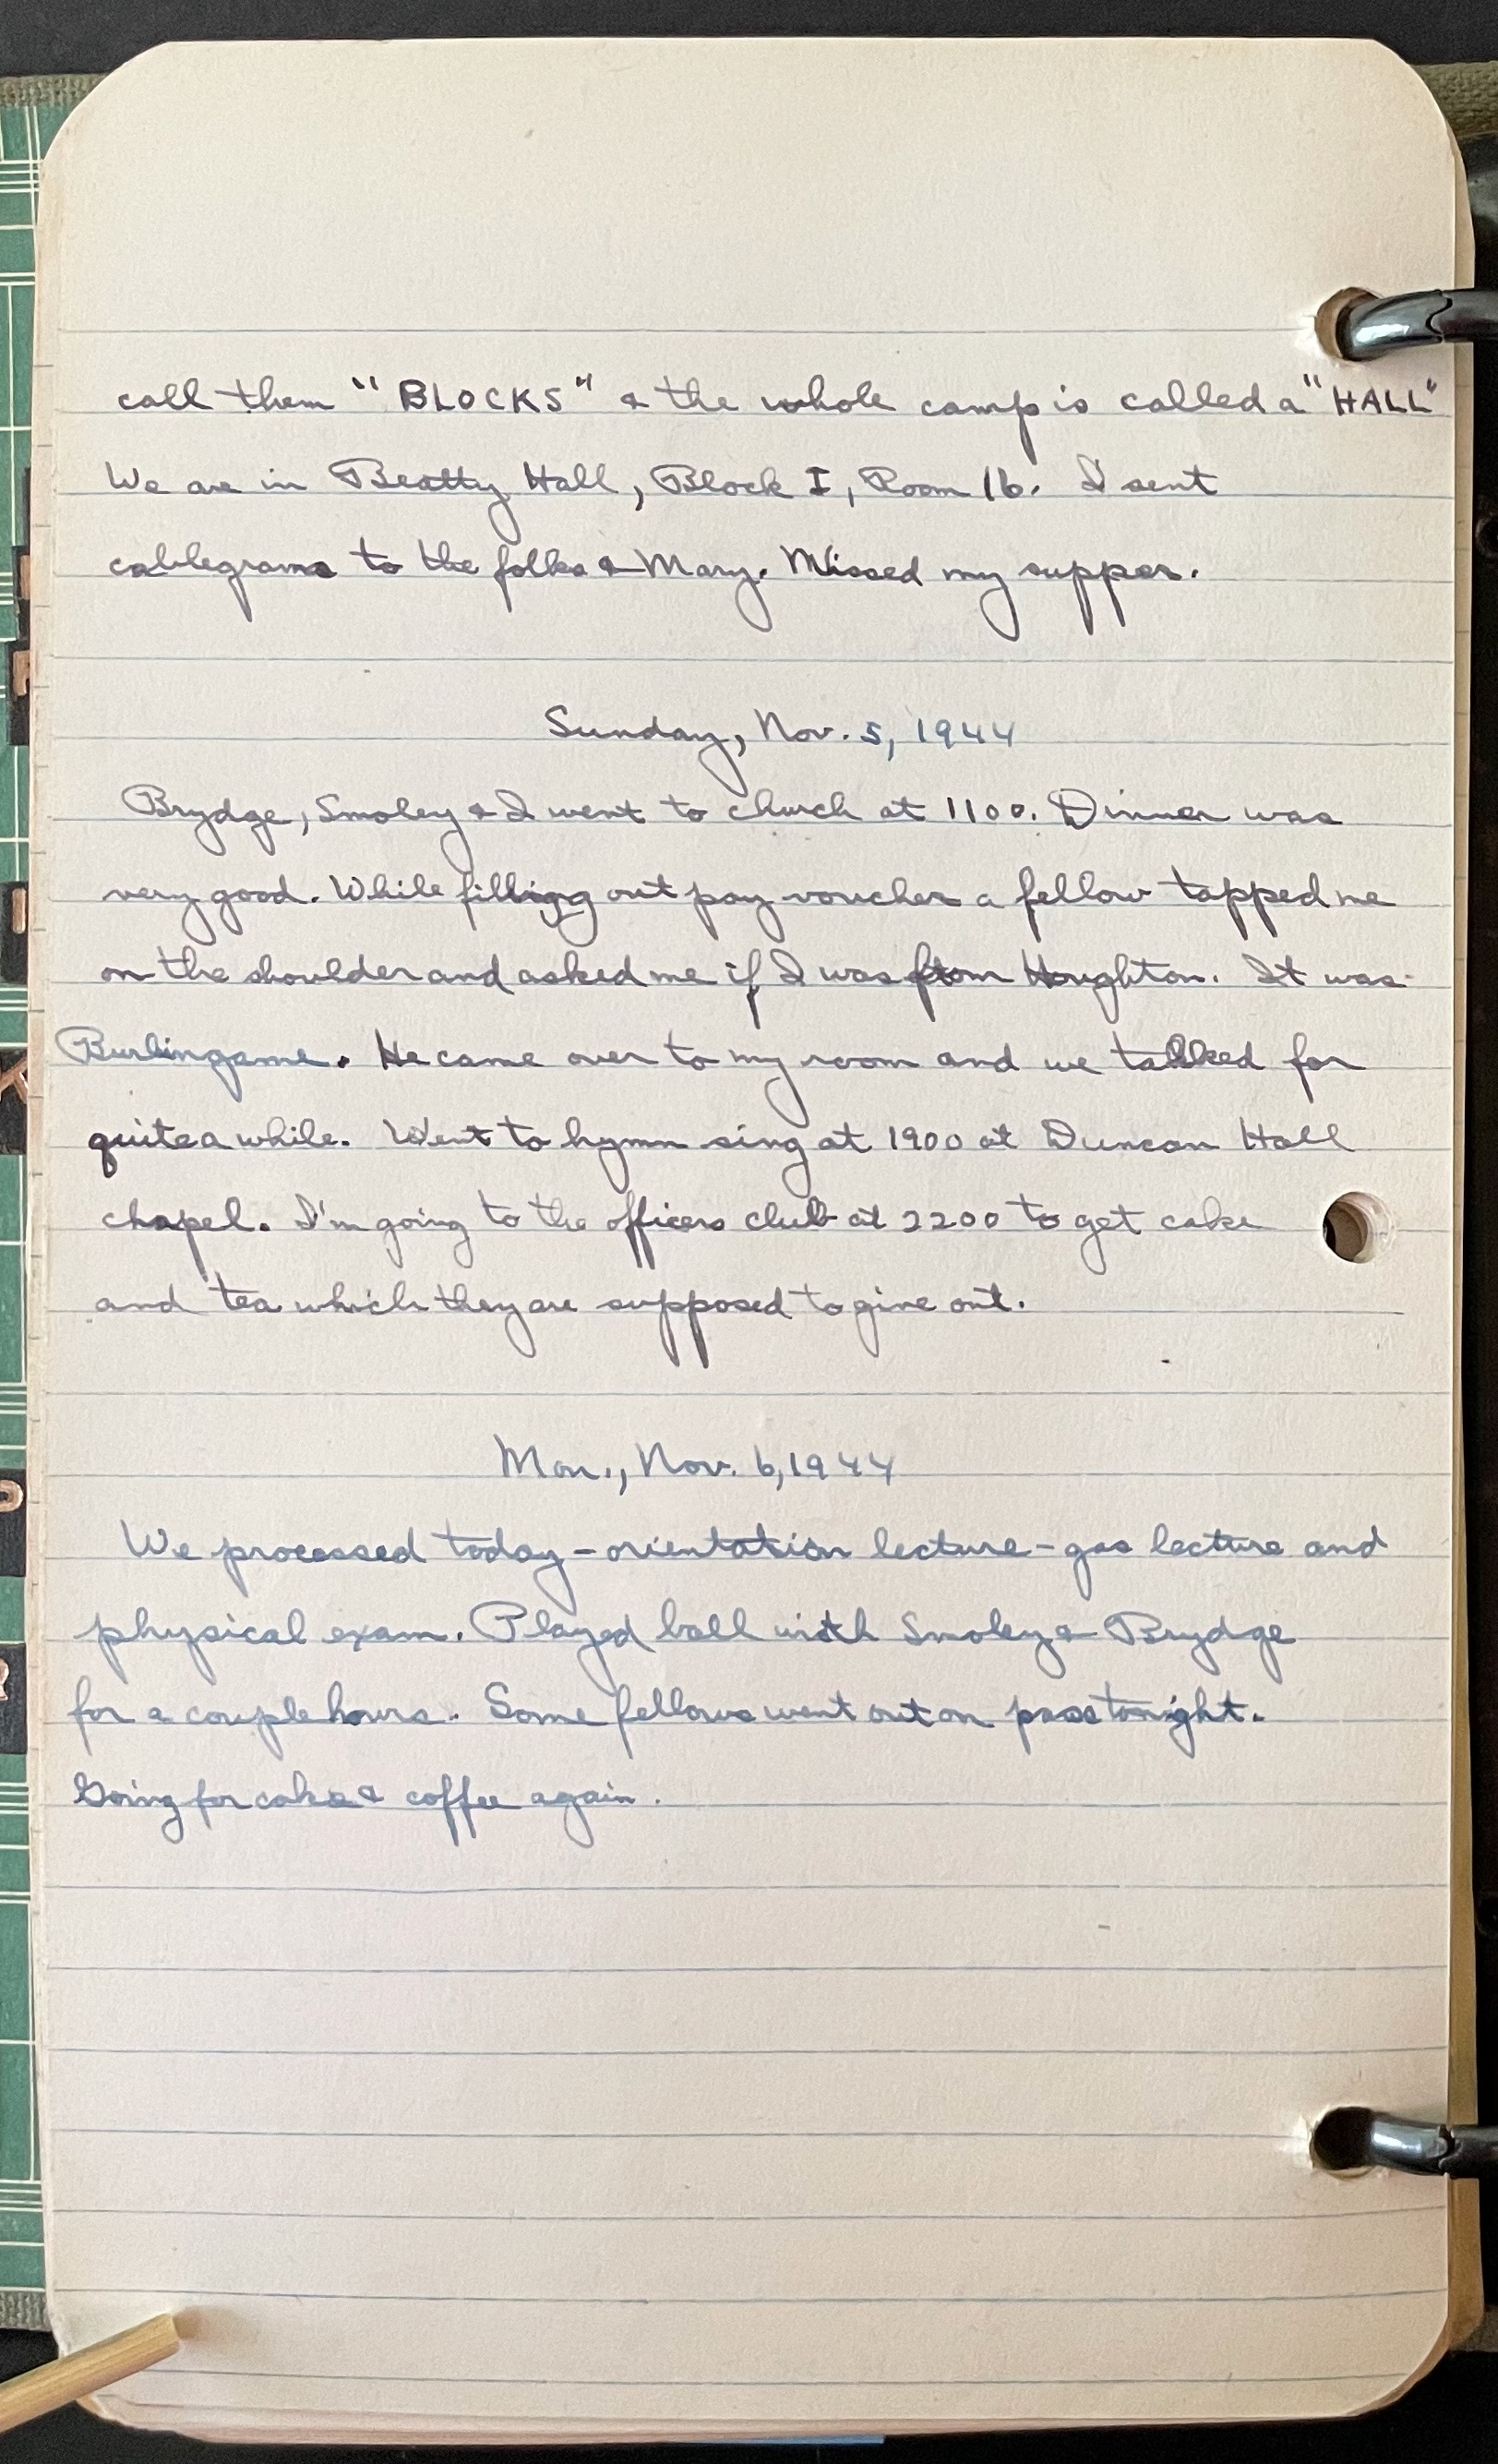 call them "BLOCKS" & the whole camp is called a "HALL"
We are in Beatty Hall, Block I, Room 16. I sent
cablegrams to the folks & Mary. Missed my supper.
Sunday, Nov. 5, 1944
Brydge, Smoley & I went to church at 1100. Dinner was
very good. While filling out pay vouchers a fellow tapped me
on the shoulder and asked me if I was from Houghton. It was
Burlingame. He came over to my room and we talked for
quite a while. Went to hymn sing at 1900 at Duncan Hall
chapel. I'm going to the officers club at 2200 to get cake
and tea which they are supposed to give out.
Mon., Nov. 6, 1944
We processed today - orientation lecture - gas lecture and
physical exam. Played ball with Smoley & Brydge
for a couple hours. Some fellows went out on pass tonight.
Going for cake & coffee again.